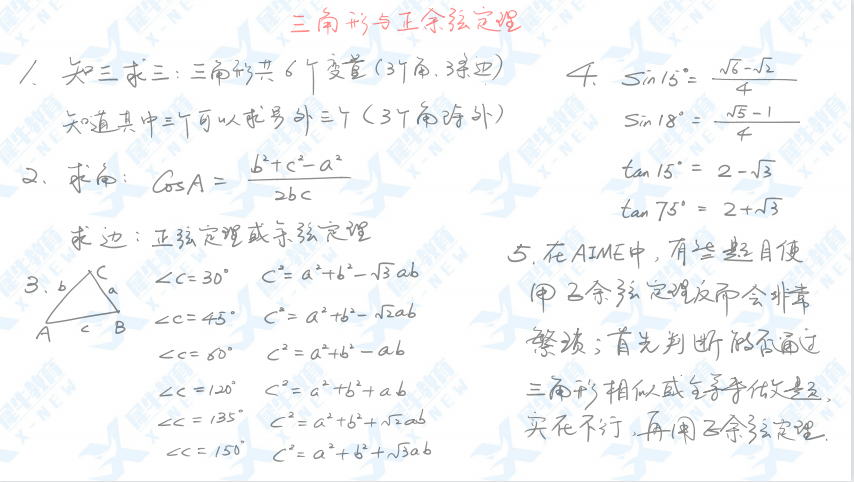 三角形与正余弦定理
1. 知三求三：三角形共6个变量(3个角、3条边)
知道其中三个可以求另外三个(3个角除外)
2. 求角： CosA = (b²+c²-a²)/(2bc)
求边：正弦定理或余弦定理
3. A B C a b c
∠C=30° C²=a²+b²-√3ab
∠C=45° C²=a²+b²-√2ab
∠C=60° C²=a²+b²-ab
∠C=120° C²=a²+b²+ab
∠C=135° C²=a²+b²+√2ab
∠C=150° C²=a²+b²+√3ab
4. Sin15°= (√6-√2)/4
Sin18° = (√5-1)/4
tan15° = 2-√3
tan75° = 2+√3
5. 在AIME中，有些题目使
用正余弦定理反而会非常
繁琐；首先判断能否通过
三角形相似或全等来做题，
实在不行，再用正余弦定理.
犀牛教育
X-NEW